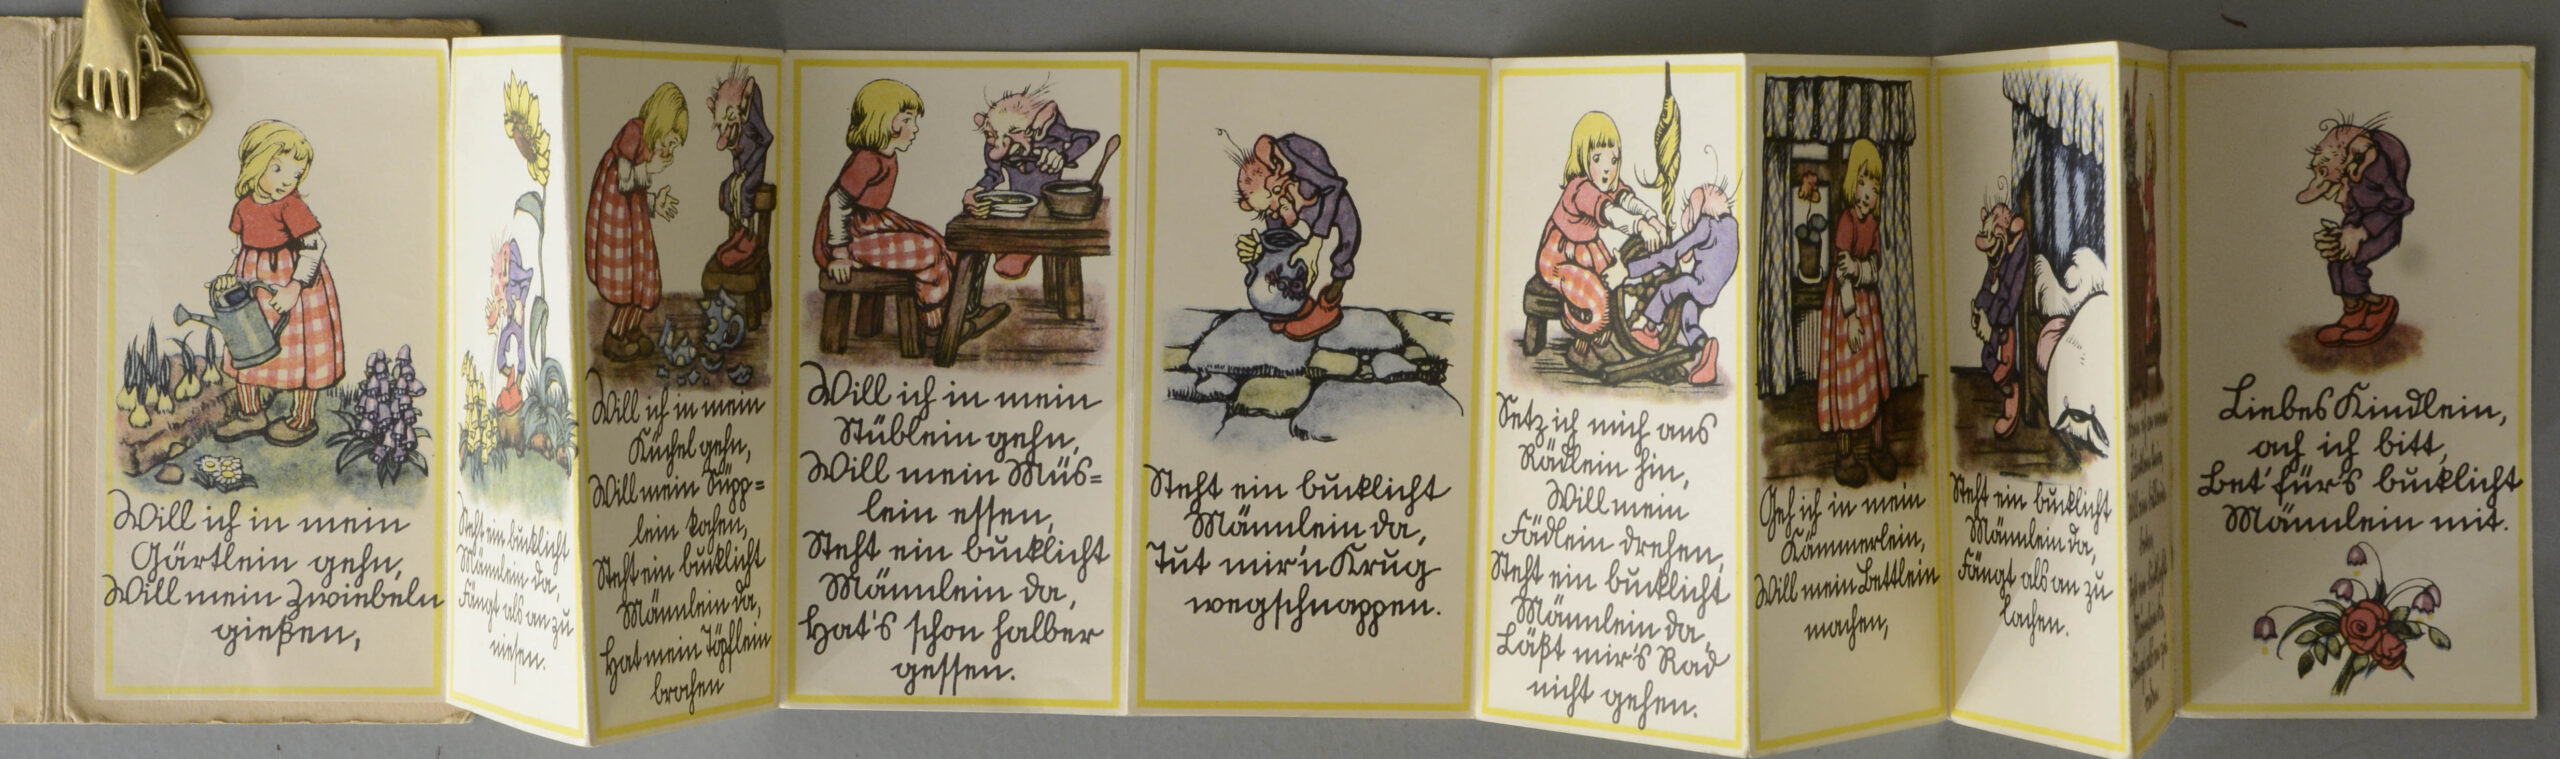 Will ich in mein
Gärtlein gehn,
Will mein Zwiebeln
gießen,
Steht ein bucklicht
Männlein da,
Fängt als an zu
niesen.
Will ich in mein
Küchel gehn,
Will mein Süpp=
lein kochen,
Steht ein bucklicht
Männlein da,
Hat mein Töpflein
brochen
Will ich in mein
Stüblein gehn,
Will mein Müs=
lein essen,
Steht ein bucklicht
Männlein da,
Hat's schon halber
gessen.
Steht ein bucklicht
Männlein da,
Tut mir'n Krug
wegschnappen.
Setz ich mich ans
Rädlein hin,
Will mein
Fädlein drehen,
Steht ein bucklicht
Männlein da,
Läßt mir's Rad
nicht gehen.
Geh ich in mein
Kämmerlein,
Will mein Bettlein
machen,
Steht ein bucklicht
Männlein da,
Fängt als an zu
lachen.
Liebes Kindlein,
ach ich bitt,
Bet' für's bucklicht
Männlein mit.